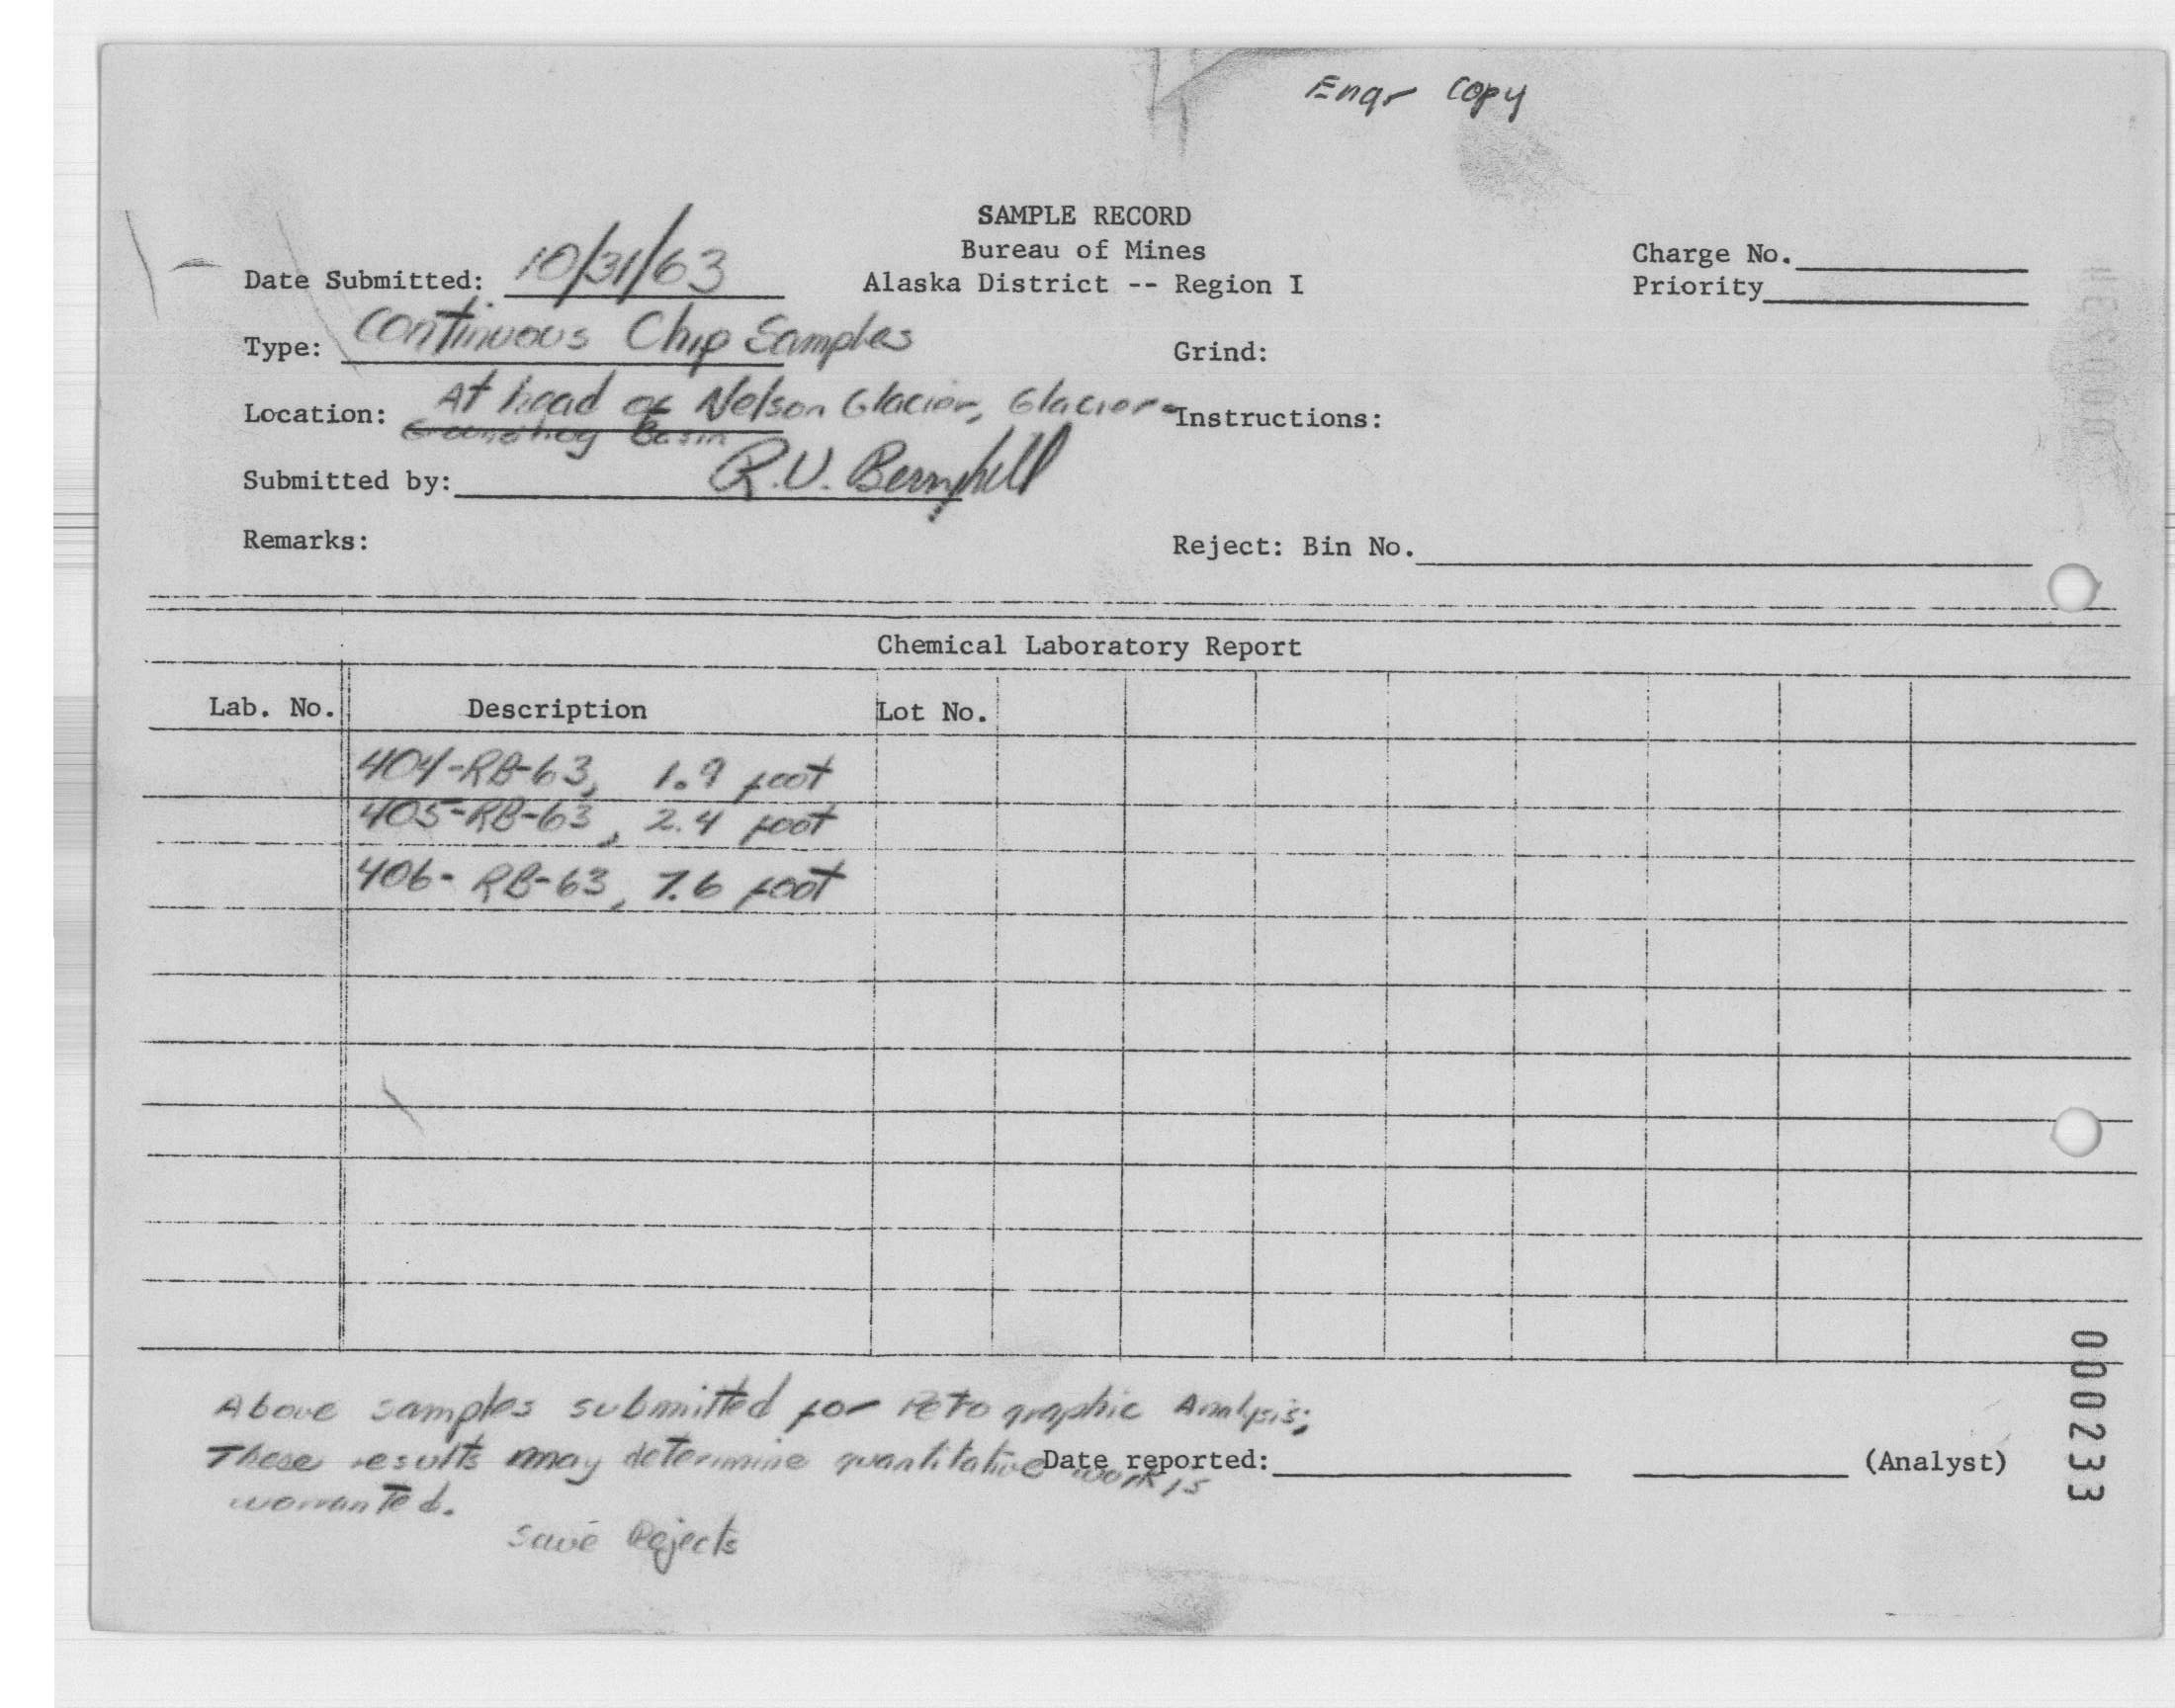 Engr Copy
SAMPLE RECORD
Bureau of Mines
Alaska District -- Region I
Charge No.
Priority
Date Submitted: 10/31/63
Type: Continuous Chip Samples
Grind:
Location: At head of Nelson Glacier, Glacier-
Groundhog Basin
Instructions:
Submitted by: R.V. Berryhill
Remarks:
Reject: Bin No.
Chemical Laboratory Report
Lab. No. Description Lot No.
404-RB-63, 1.9 foot
405-RB-63, 2.4 foot
406-RB-63, 7.6 foot
Above samples submitted for Petrographic Analysis;
These results may determine quantitative work is
warranted.
Save Rejects
Date reported: (Analyst)
000233